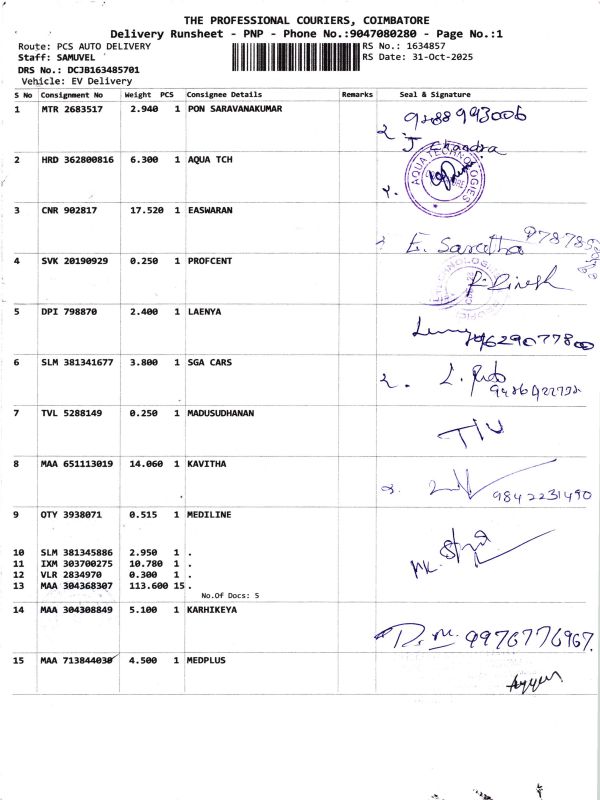 THE PROFESSIONAL COURIERS, COIMBATORE
Delivery Runsheet - PNP - Phone No.:9047080280 - Page No.:1
Route: PCS AUTO DELIVERY RS No.: 1634857
Staff: SAMUVEL RS Date: 31-Oct-2025
DRS No.: DCJB163485701
Vehicle: EV Delivery
S No Consignment No Weight PCS Consignee Details Remarks Seal & Signature
1 MTR 2683517 2.940 1 PON SARAVANAKUMAR
J. Chandra
2 HRD 362800816 6.300 1 AQUA TCH
AQUA TECHNOLOGIES
3 CNR 902817 17.520 1 EASWARAN
E. Saretha
4 SVK 20190929 0.250 1 PROFCENT
R. Dinesh
5 DPI 798870 2.400 1 LAENYA
6 SLM 381341677 3.800 1 SGA CARS
2.
7 TVL 5288149 0.250 1 MADUSUDHANAN
8 MAA 651113019 14.060 1 KAVITHA
9842231490
9 OTY 3938071 0.515 1 MEDILINE
10 SLM 381345886 2.950 1 .
11 IXM 303700275 10.780 1 .
12 VLR 2834970 0.300 1 .
13 MAA 304368307 113.600 15 .
No.Of Docs: 5
14 MAA 304308849 5.100 1 KARHIKEYA
9976776967.
15 MAA 713844030 4.500 1 MEDPLUS